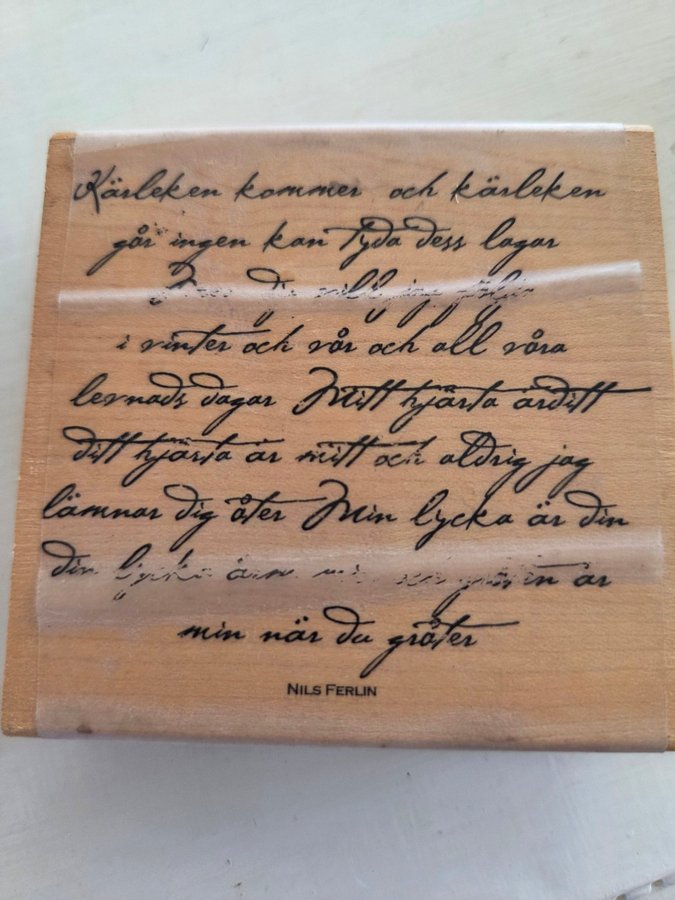 Kärleken kommer och kärleken
går ingen kan tyda dess lagar
Men dig vill jag följa
i vinter och vår och all våra
levnads dagar Mitt hjärta är ditt
ditt hjärta är mitt och aldrig jag
lämnar dig åter Min lycka är din
din lycka är min och gråten är
min när du gråter
NILS FERLIN